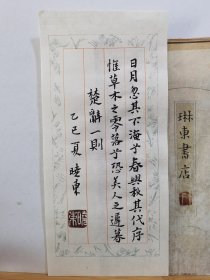 日月忽其不淹兮春與秋其代序
惟草木之零落兮恐美人之遲暮
楚辭一則
乙巳夏
琳東書店